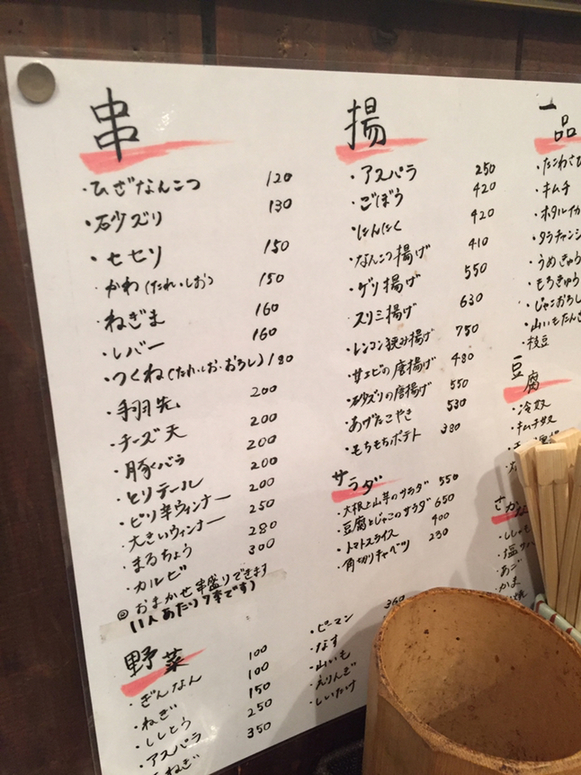 串
・ひざなんこつ 120
・砂ズリ 130
・セセリ 150
・かわ(たれ・しお) 150
・ねぎま 160
・レバー 160
・つくね(たれ・しお・おろし) 180
・手羽先 200
・チーズ天 200
・豚バラ 200
・とりテール 200
・ピリ辛ウィンナー 200
・大きいウィンナー 250
・まるちょう 280
・カルビ 300
◎おまかせ串盛りできます
(1人あたり7本です)
野菜
・ぎんなん 100
・ねぎ 100
・ししとう 150
・アスパラ 250
350
・ピーマン
・なす
・山いも
・えりんぎ
・しいたけ
360
揚
・アスパラ 250
・ごぼう 420
・にんにく 420
・なんこつ揚げ 410
・ゲソ揚げ 550
・スリミ揚げ 630
・レンコン挟み揚げ 750
・甘エビの唐揚げ 480
・砂ズリの唐揚げ 550
・あげたこやき 530
・もちもちポテト 380
サラダ
・大根と山芋のサラダ 550
・豆腐とじゃこのサラダ 650
・トマトスライス 400
・角切りキャベツ 230
一品
・たこわさび
・キムチ
・ホタルイカ
・タラチャンジ
・うめきゅう
・もろきゅう
・じゃこおろし
・山いもたんざ
・枝豆
豆腐
・冷奴
・キムチ奴
さか
・ししゃ
・塩サバ
・あご
・かま
焼